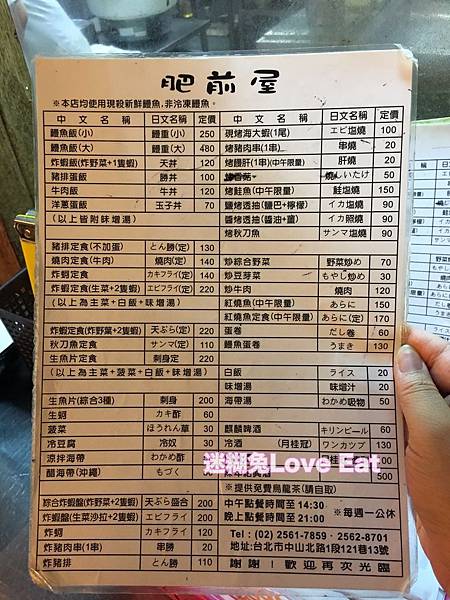 肥前屋
※本店均使用現殺新鮮鰻魚,非冷凍鰻魚。
中文名稱 日文名稱 定價
鰻魚飯(小) 鰻重(小) 250
鰻魚飯(大) 鰻重(大) 480
炸蝦飯(炸野菜+1隻蝦) 天丼 120
豬排蛋飯 勝丼 100
牛肉飯 牛丼 120
洋蔥蛋飯 玉子丼 70
(以上皆附味增湯)
豬排定食(不加蛋) とん勝(定) 130
燒肉定食(牛肉) 燒肉(定) 140
炸蚵定食 カキフライ(定) 140
炸蝦定食(生菜+2隻蝦) エビフライ(定) 220
(以上為主菜+白飯+味增湯)
炸蝦定食(炸野菜+2隻蝦) 天ぷら(定) 220
秋刀魚定食 サンマ(定) 110
生魚片定食 刺身定 220
(以上為主菜+菠菜+白飯+味增湯)
生魚片(綜合3種) 刺身 200
生蚵 カキ酢 60
菠菜 ほうれん草 30
冷豆腐 冷奴 30
涼拌海帶 わかめ酢
醋海帶(沖繩) もづく
綜合炸蝦盤(炸野菜+2隻蝦) 天ぷら盛合 200
炸蝦盤(生菜沙拉+2隻蝦) エビフライ 200
炸蚵 カキフライ 120
炸豬肉串(1串) 串勝 20
炸豬排 とん勝 110
中文名稱 日文名稱 定價
現烤海大蝦(1尾) エビ塩燒 100
烤豬肉串(1串) 串燒 20
烤鰻肝(1串)(中午限量) 肝燒 50
しいたけ 50
烤鮭魚(中午限量) 鮭塩燒 150
鹽烤透抽(鹽巴+檸檬) イカ塩燒 90
醬烤透抽(醬油+薑) イカ照燒 90
烤秋刀魚 サンマ塩燒 90
炒綜合野菜 野菜炒め 70
炒豆芽菜 もやし炒め 30
炒牛肉 燒肉 100
紅燒魚(中午限量) あらに 150
紅燒魚定食(中午限量) あらに(定) 170
蛋卷 だし卷 60
鰻魚蛋卷 うまき 130
白飯 ライス 20
味增湯 味增汁 20
海帶湯 わかめ吸物 50
麒麟啤酒 キリンビール 60
冷酒 (月桂冠) ワンカップ 130
500
迷糊兔Love Eat
※提供免費烏龍茶(請自取)
中午點餐時間至14:30
晚上點餐時間至21:00
※每週一公休
Tel:(02) 2561-7859、2562-8701
地址:台北市中山北路1段121巷13號
謝謝!歡迎再次光臨